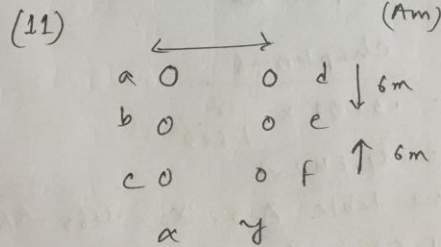 (11) (Am)
a O O d 6m
b O O e
c O O f 6m
x y